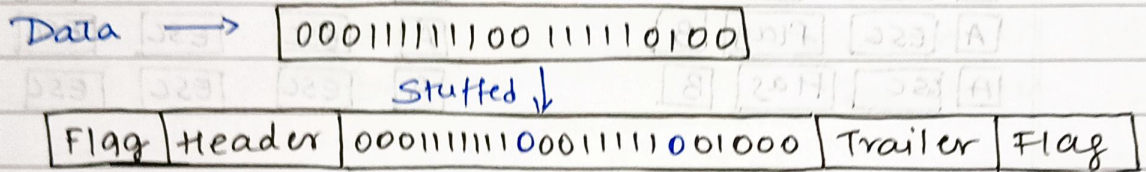 Data → 0001111111100 11111010​0
Stuffed ↓
Flag Header 000111111110001111​1001000 Trailer Flag